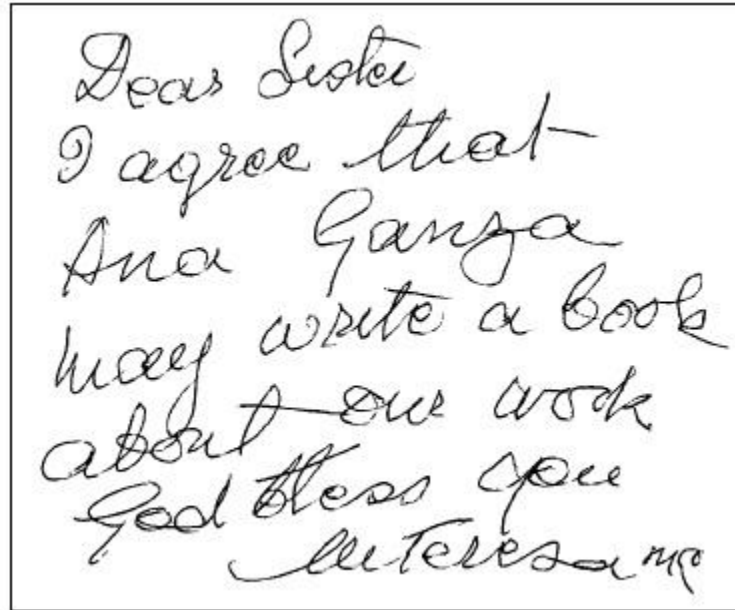 Dear Sister
I agree that
Ana Ganza
may write a book
about our work
God bless you
M Teresa mc